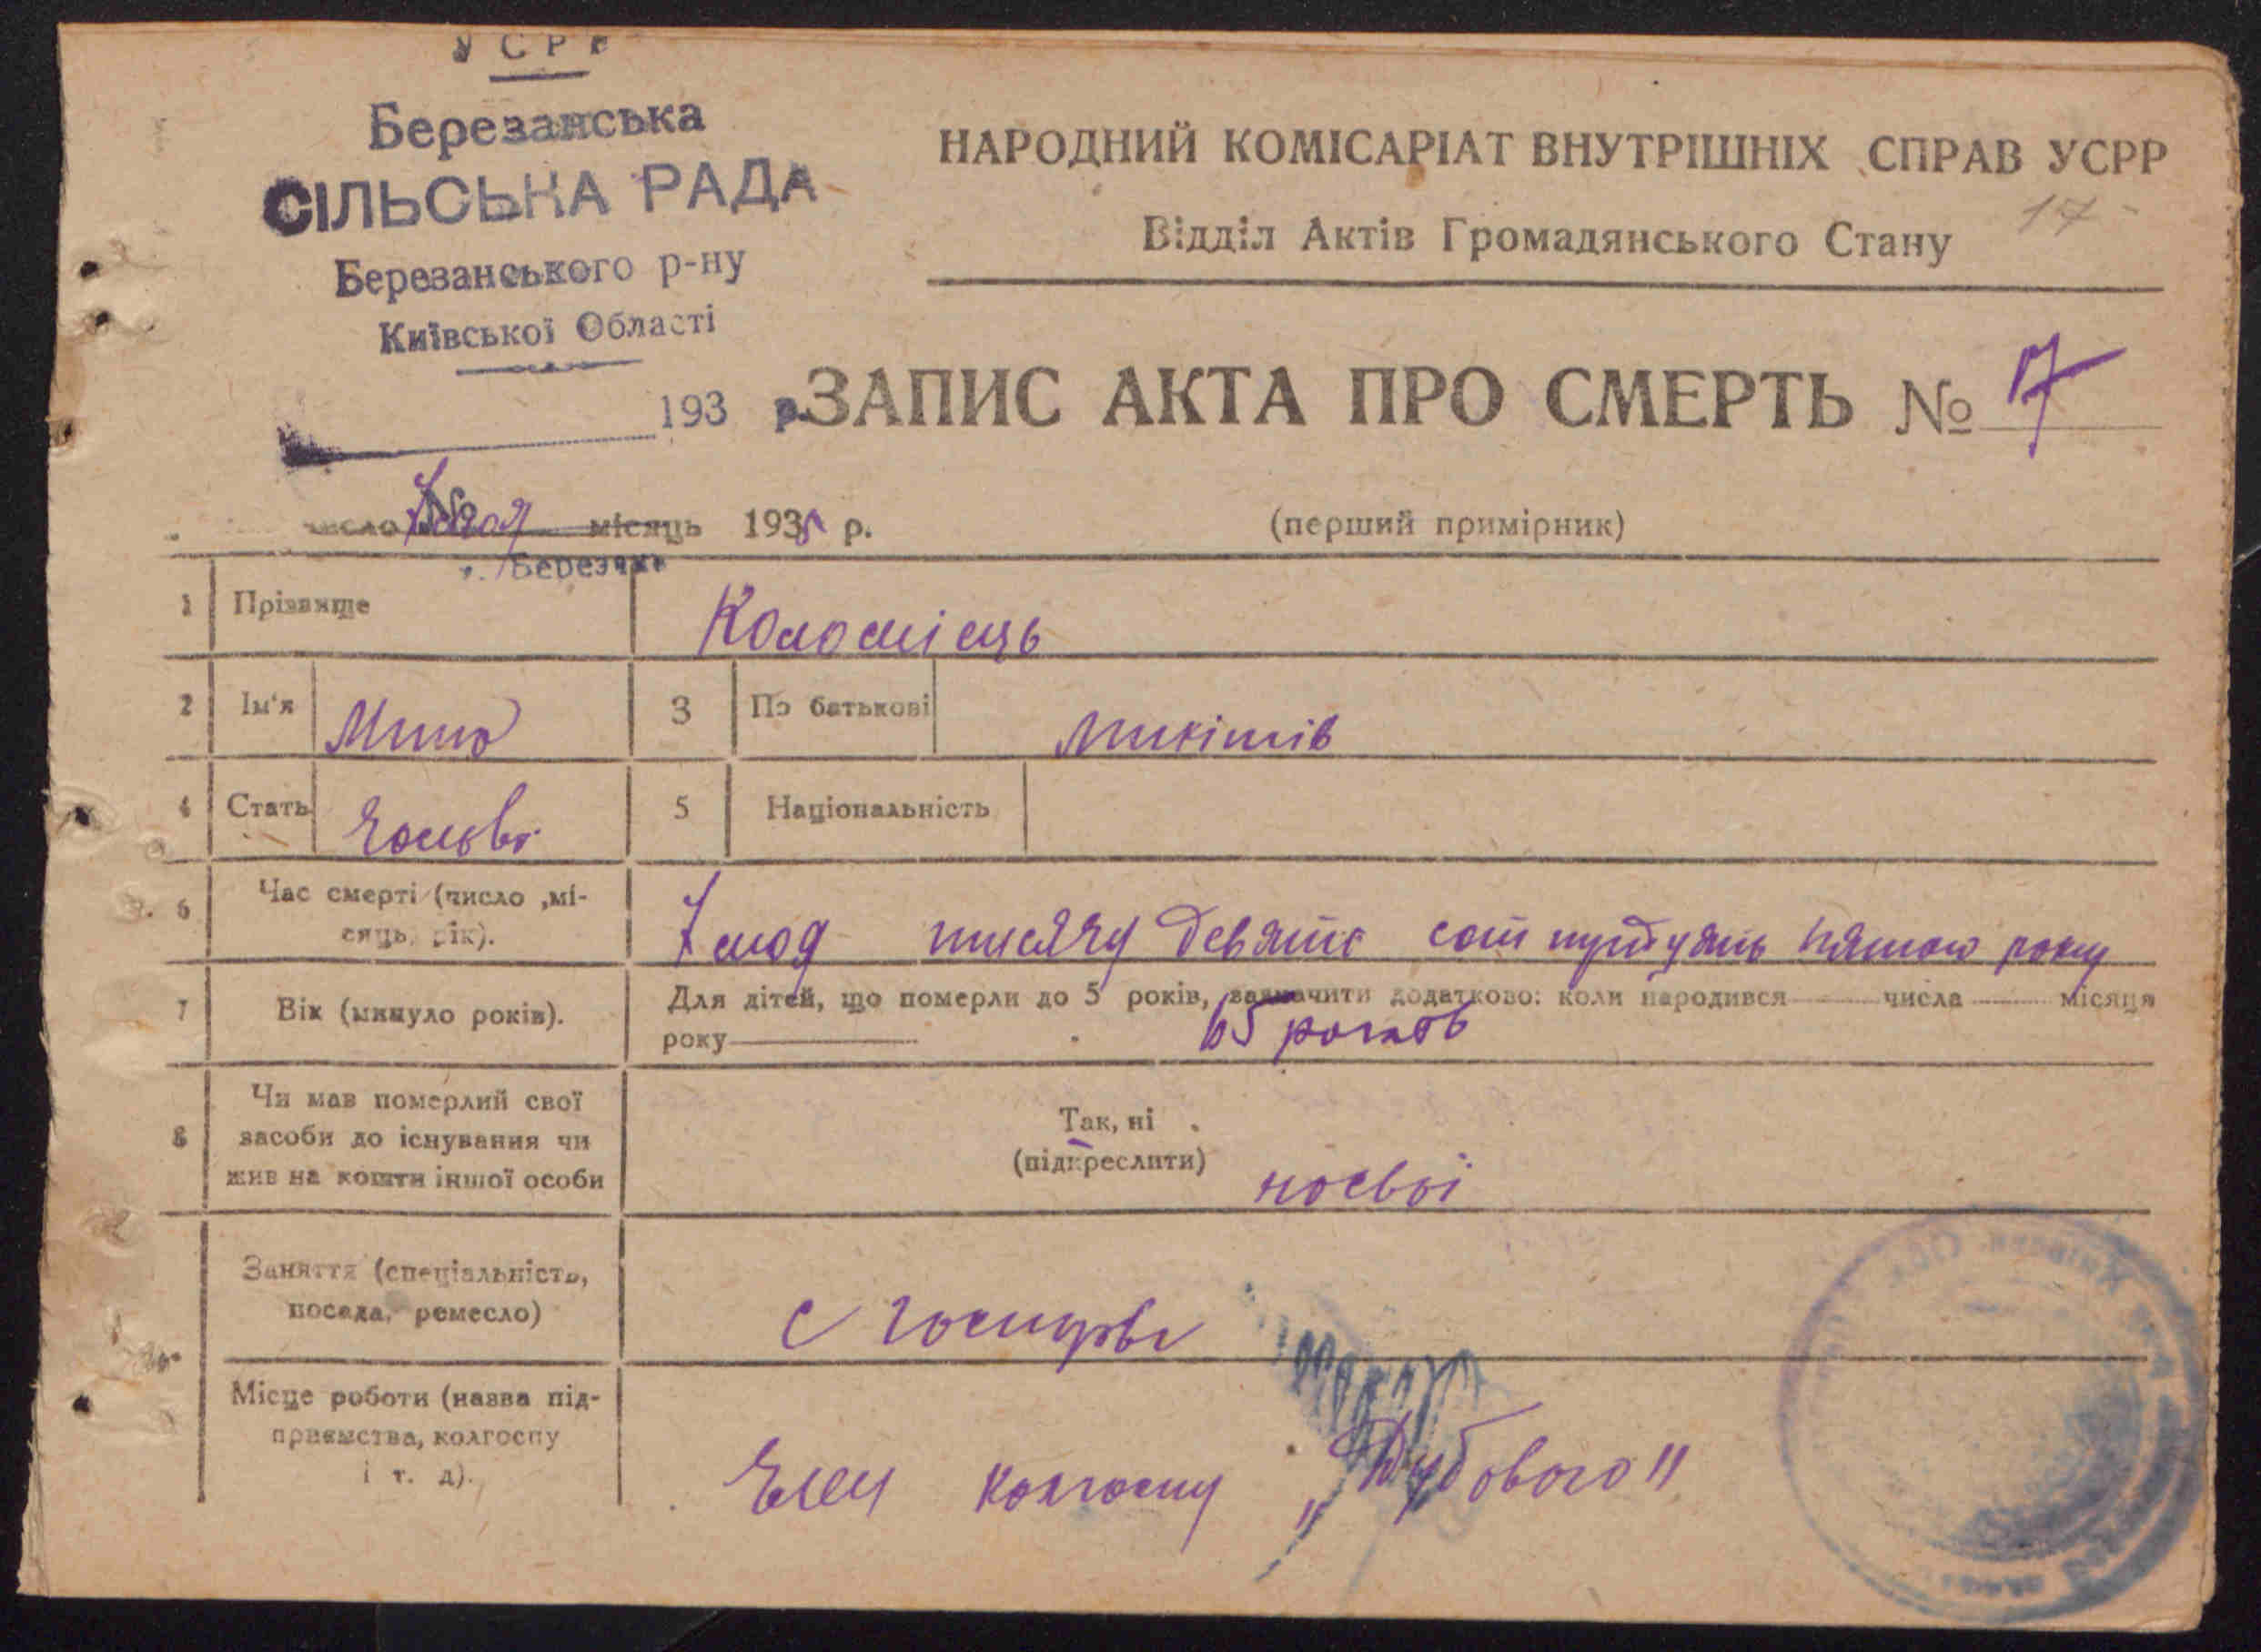 УСРР
Березанська
СІЛЬСЬКА РАДА
Березанського р-ну
Київської Області
193 р.
НАРОДНИЙ КОМІСАРІАТ ВНУТРІШНІХ СПРАВ УСРР
Відділ Актів Громадянського Стану
17
ЗАПИС АКТА ПРО СМЕРТЬ № 17
(перший примірник)
число 7 місяць 1935 р.
1 Прізвище Коломієць
2 Ім'я 3 По батькові Микітів
4 Стать Чолові 5 Національність
6 Час смерті (число ,мі-
сяць, рік).
7 тисячу девятс сот трицять пятого року
7 Вік (минуло років).
Для дітей, що померли до 5 років, зазначити додатково: коли народився числа місяця
року 65 років
8 Чи мав померлий свої
засоби до існування чи
жив на кошти іншої особи
Так, ні
(підкреслити)
Заняття (спеціальність,
посада, ремесло)
с
Місце роботи (назва під-
приємства, колгоспу
і т. д).
Член колгоспу „Дубового"